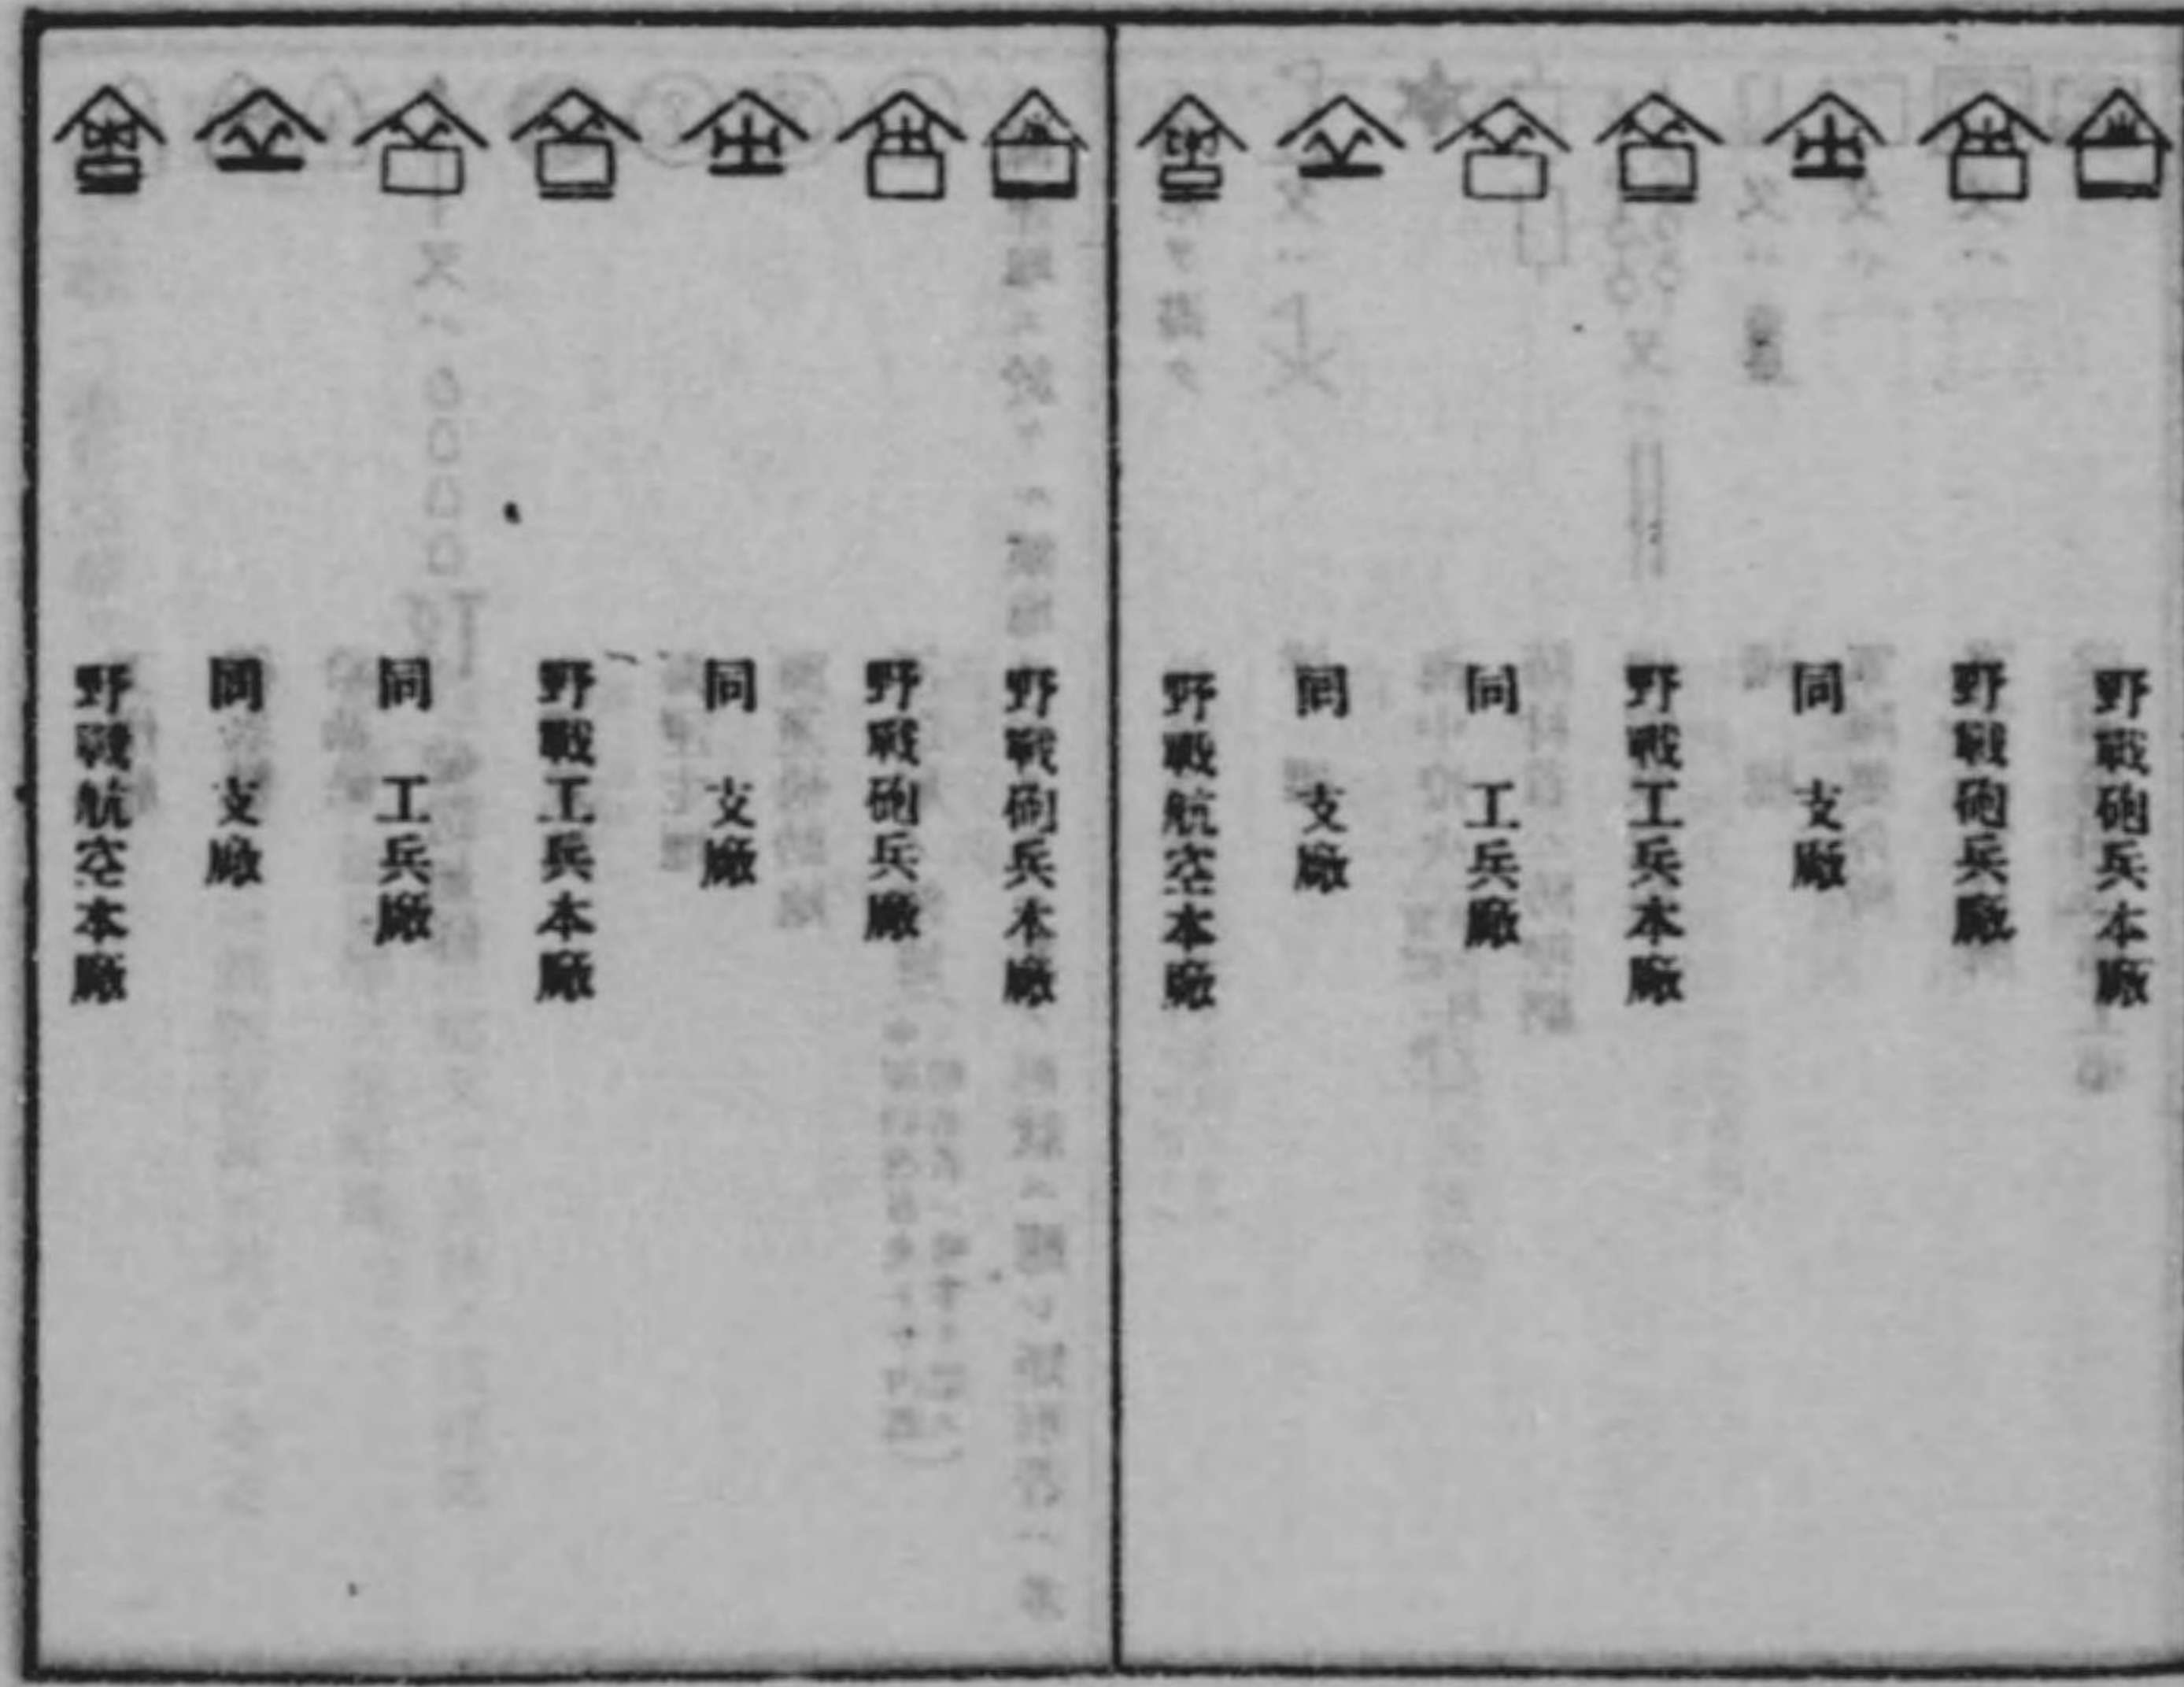 野戰砲兵本廠
野戰砲兵廠
同 支廠
野戰工兵本廠
同 工兵廠
同 支廠
野戰航空本廠
野戰砲兵本廠
野戰砲兵廠
同 支廠
野戰工兵本廠
同 工兵廠
同 支廠
野戰航空本廠